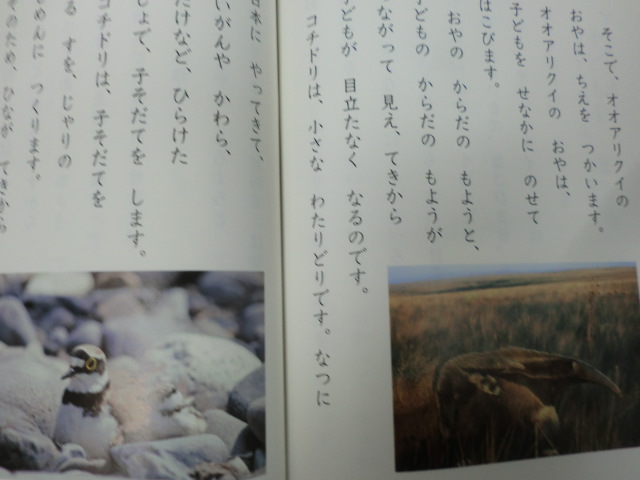 そこで、オオアリクイの
おやは、ちえを つかいます。
オオアリクイの おやは、
子どもを せなかに のせて
はこびます。
おやの からだの もようと、
子どもの からだの もようが
つながって 見え、てきから
子どもが 目立たなく なるのです。
コチドリは、小さな わたりどりです。なつに
日本に やってきて、
いがんや かわら、
たけなど、ひらけた
しょで、子そだてを します。
コチドリは、子そだてを
る すを、じゃりの
めんに つくります。
そのため、ひなが てきから